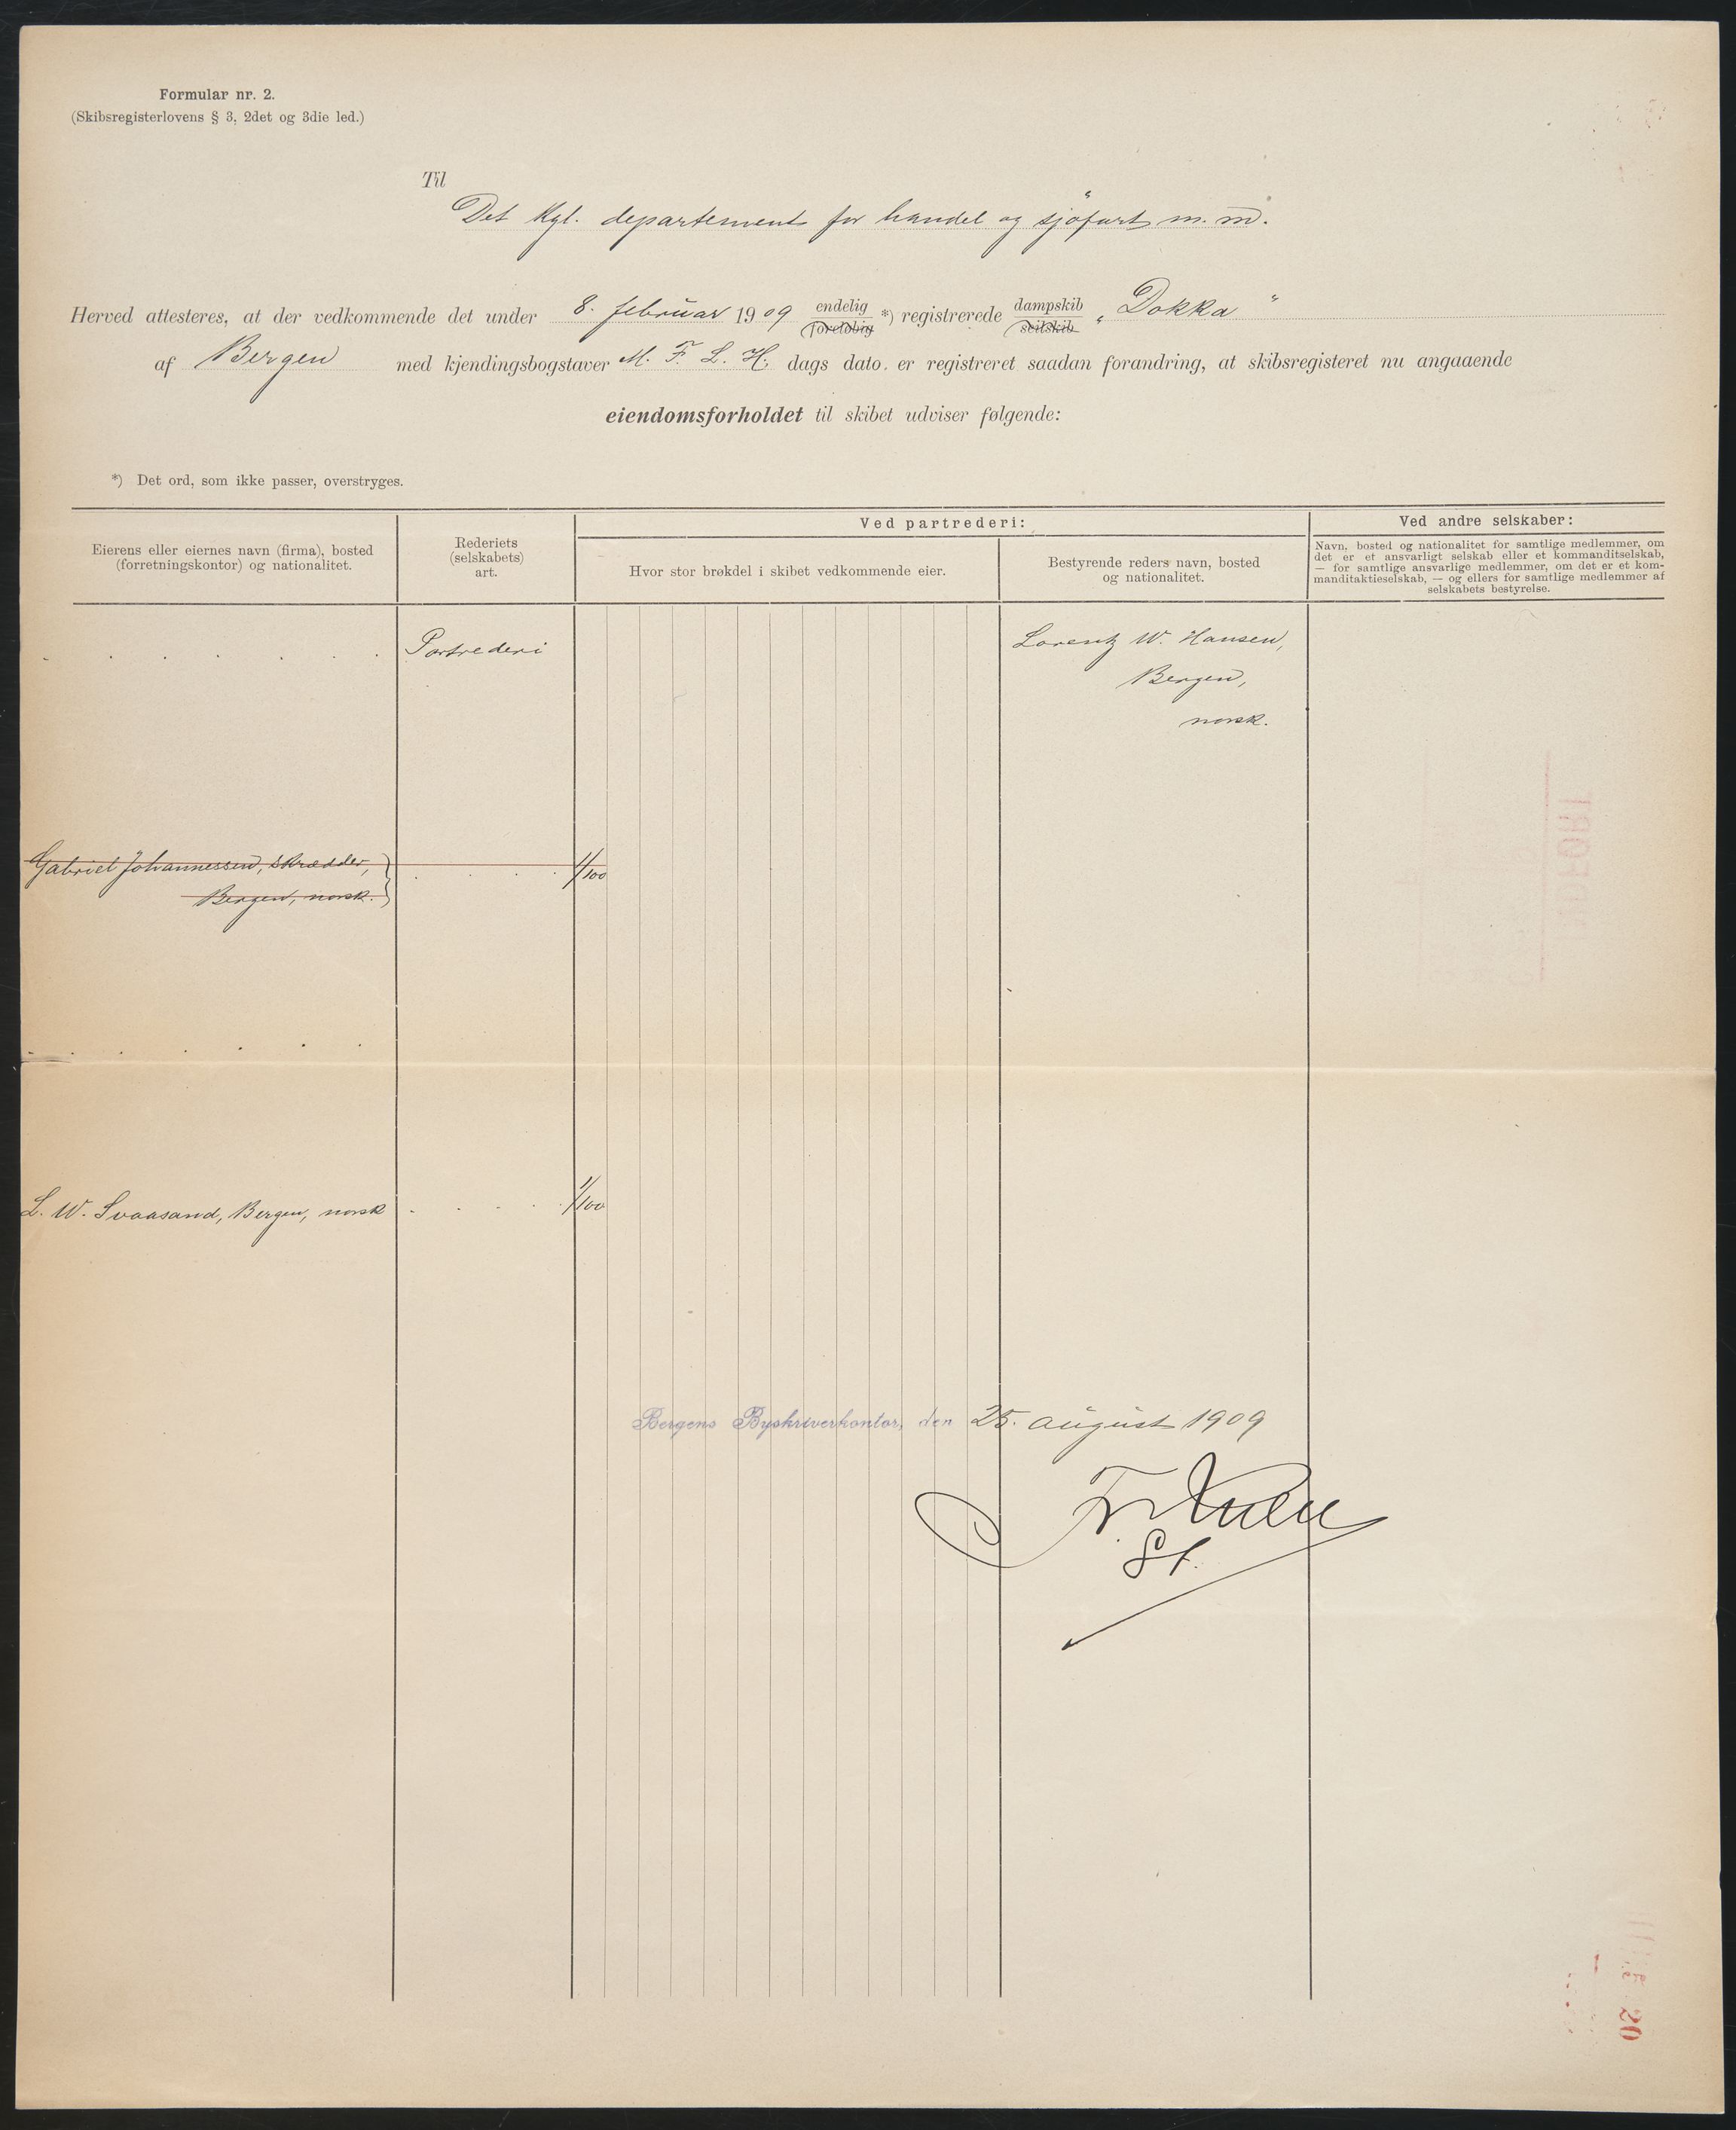 Formular nr. 2.
(Skibsregisterlovens § 3, 2det og 3die led.)
Til
Det Kgl. departement for handel og sjøfart m. m.
Herved attesteres, at der vedkommende det under 8. februar 1909 endelig foreløbig *) registrerede dampskib seilskib „Dokka"
af Bergen med kjendingsbogstaver M. F. L. H. dags dato er registreret saadan forandring, at skibsregisteret nu angaaende
eiendomsforholdet til skibet udviser følgende:
*) Det ord, som ikke passer, overstryges.
Eierens eller eiernes navn (firma), bosted
(forretningskontor) og nationalitet.
Rederiets
(selskabets)
art.
Ved partrederi:
Hvor stor brøkdel i skibet vedkommende eier.
Bestyrende reders navn, bosted
og nationalitet.
Ved andre selskaber:
Navn, bosted og nationalitet for samtlige medlemmer, om
det er et ansvarligt selskab eller et kommanditselskab,
— for samtlige ansvarlige medlemmer, om det er et kom-
manditaktieselskab, — og ellers for samtlige medlemmer af
selskabets bestyrelse.
Partrederi
Lorentz W. Hansen,
Bergen,
norsk.
Gabriel Johannessen, skrædder,
Bergen, norsk.
1/100
L. W. Svaasand, Bergen, norsk
1/100
Bergens Byskriverkontor, den 25. august 1909
20